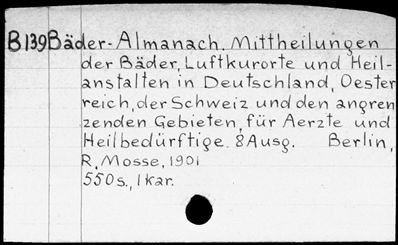 B139 Bäder-Almanach. Mittheilungen
der Bäder, Luftkurorte und Heil-
anstalten in Deutschland, Oester
reich, der Schweiz und den angren
zenden Gebieten, für Aerzte und
Heilbedürftige. 8 Ausg. Berlin,
R. Mosse, 1901
550s., 1 kar.